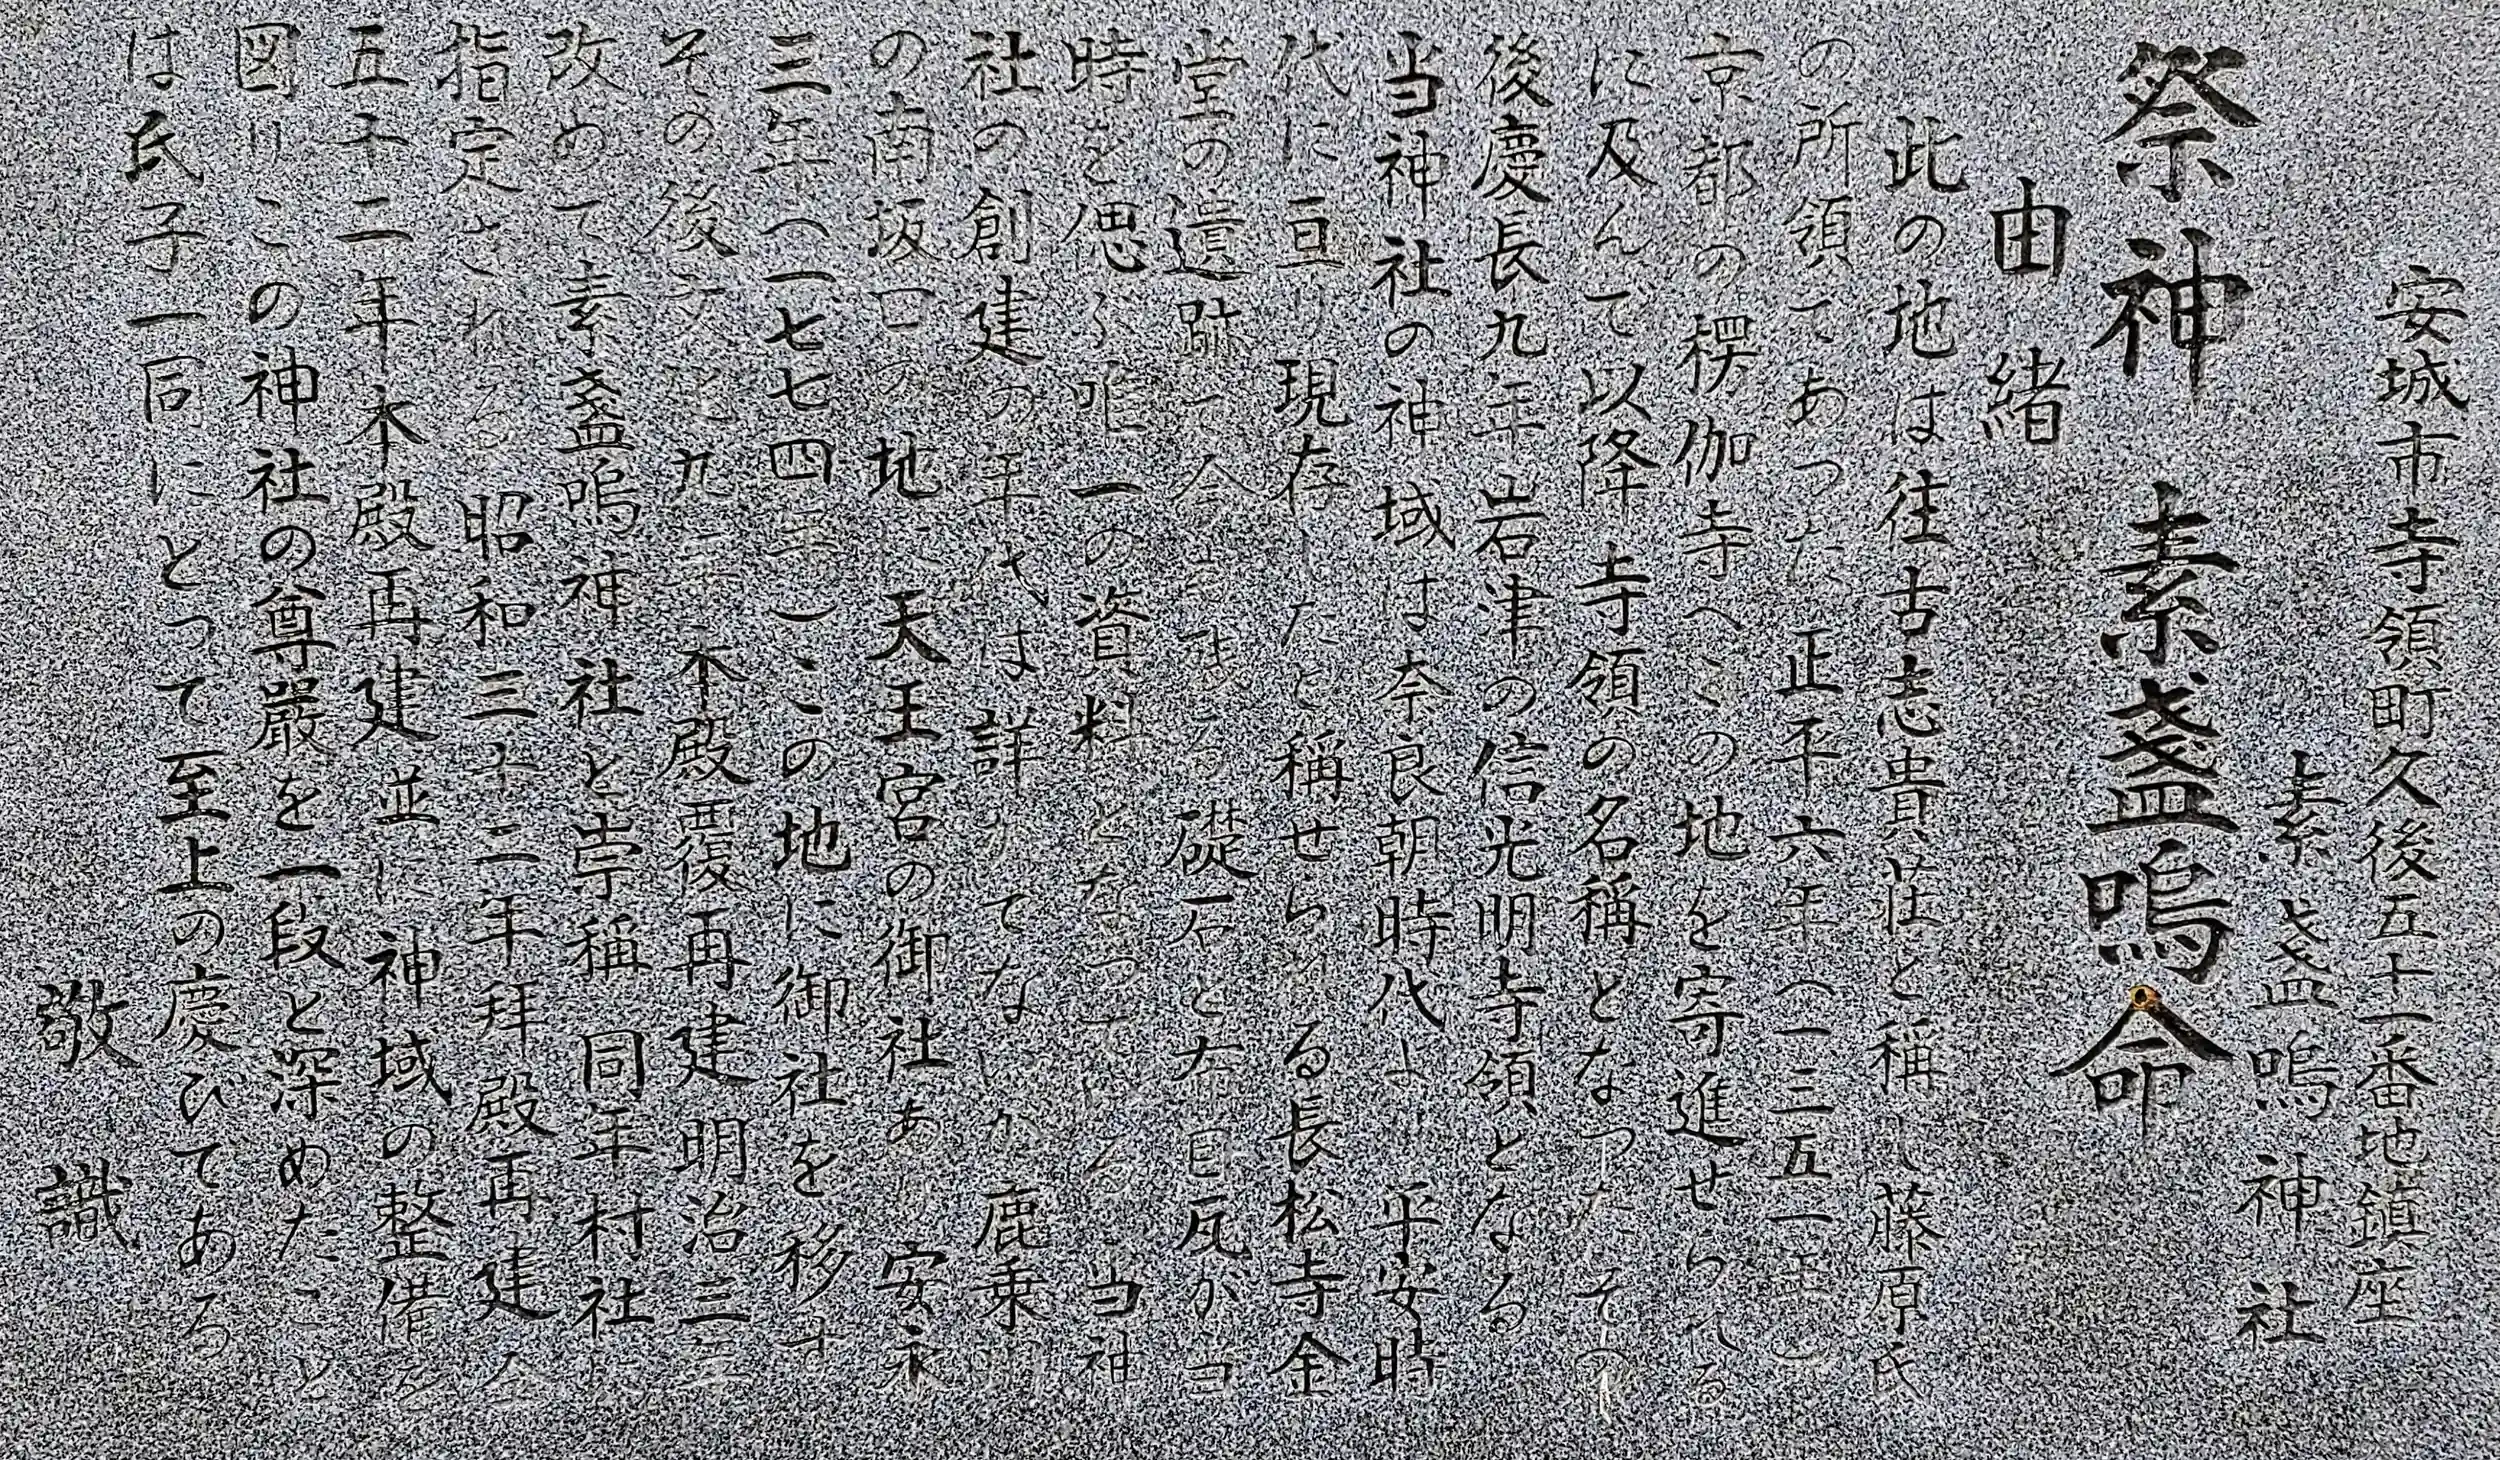 安城市寺領町久後五十一番地鎮座
素盞嗚神社
祭神 素盞嗚命
由緒
此の地は往古志貴荘と稱し藤原氏
の所領てあつた正平六年(一三五一年)
京都の楞伽寺へこの地を寄進せられる
に及んて以降寺領の名稱となつたその
後慶長九年岩津の信光明寺領となる
当神社の神域は奈良朝時代より平安時
代に亘り現存したと稱せられる長松寺金
堂の遺跡て今も残る礎石と布目瓦が当
時を偲ぶ唯一の資料となつている当神
社の創建の年代は詳かてないが鹿乗川
の南坂口の地に天王宮の御社あり安永
三年(一七七四年)この地に御社を移す
その後文化九年本殿覆再建明治三年
改めて素盞嗚神社と崇稱同年村社に
指定される昭和三十二年拝殿再建仝
五十二年本殿再建並に神域の整備を
図りこの神社の尊厳を一段と深めたこと
は氏子一同にとって至上の慶びである
敬識